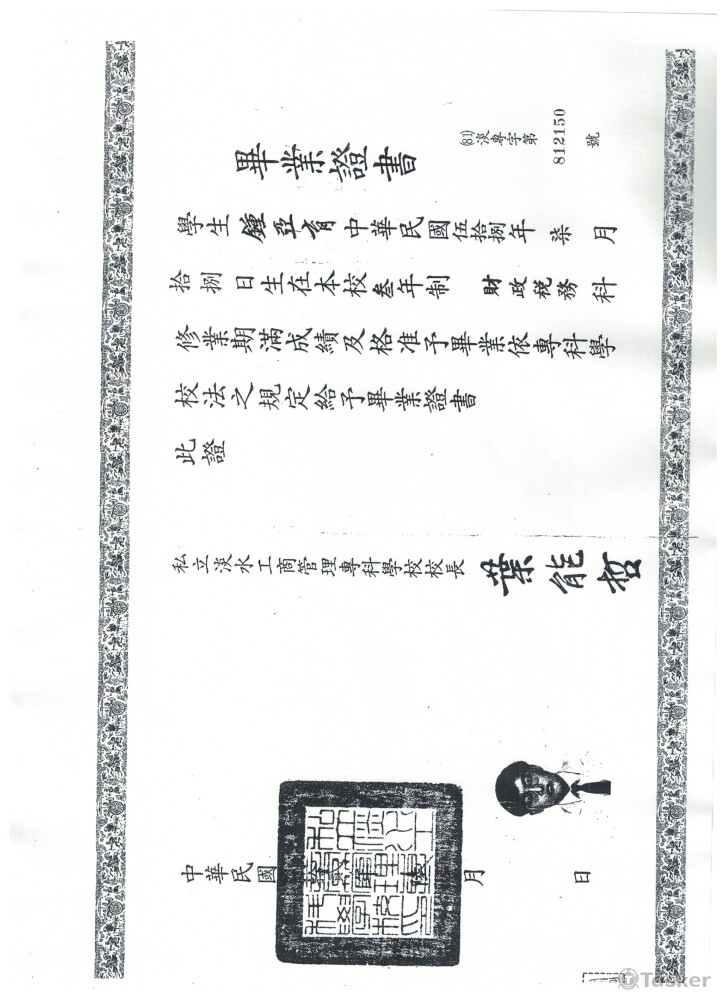 畢業證書
(81)淡專字第812150號
學生鍾亞育中華民國伍拾捌年柒月
拾捌日生在本校叁年制財政稅務科
修業期滿成績及格准予畢業依專科學
校法之規定給予畢業證書
此證
私立淡水工商管理專科學校校長葉能哲
中華民國
月
日
Tasker